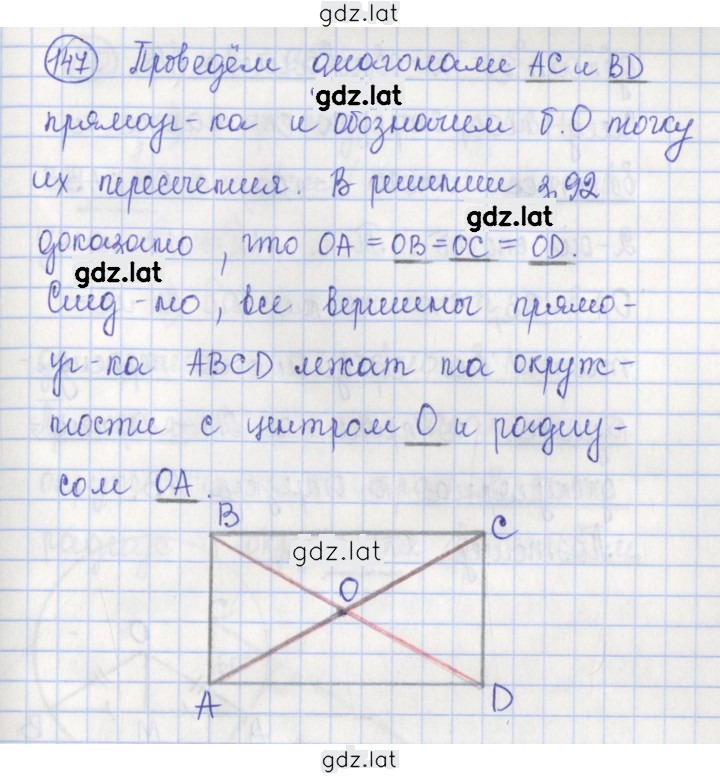 gdz.lat
147 Проведём диагонали AC и BD
gdz.lat
прямоуг-ка и обозначим б. O точку
их пересечения. В решении з. 92
gdz.lat
доказано, что OA = OB = OC = OD.
gdz.lat
След-но, все вершины прямо-
уг-ка ABCD лежат на окруж-
ности с центром O и радиу-
сом OA.
B
C
gdz.lat
O
A
D
gdz.lat